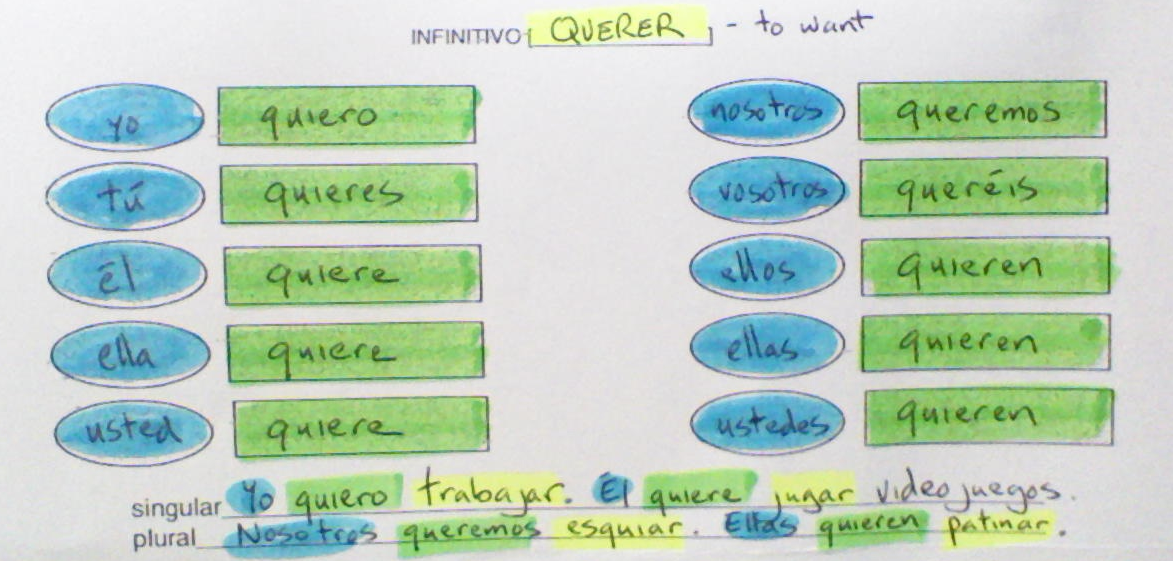 INFINITIVO QUERER - to want
yo quiero nosotros queremos
tú quieres vosotros queréis
él quiere ellos quieren
ella quiere ellas quieren
usted quiere ustedes quieren
singular Yo quiero trabajar. Él quiere jugar videojuegos.
plural Nosotros queremos esquiar. Ellas quieren patinar.